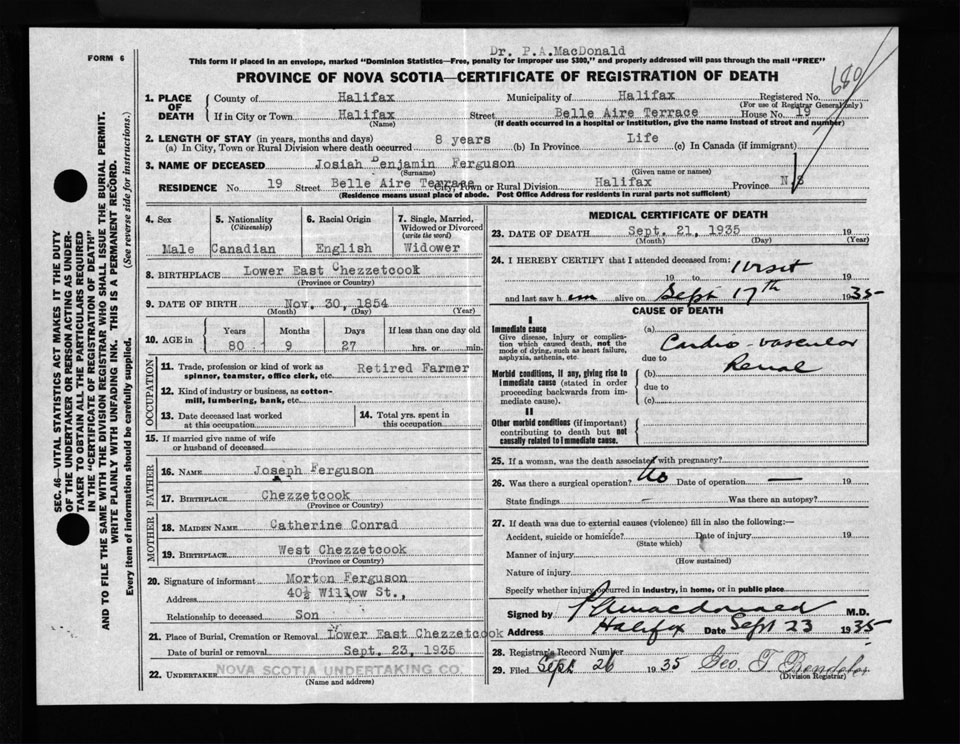 Dr. P.A.MacDonald
FORM 6
This form if placed in an envelope, marked "Dominion Statistics—Free, penalty for improper use $300," and properly addressed will pass through the mail "FREE"
PROVINCE OF NOVA SCOTIA—CERTIFICATE OF REGISTRATION OF DEATH
680
1. PLACE OF DEATH
County of Halifax Municipality of Halifax Registered No.
(For use of Registrar General only)
If in City or Town Halifax Street Belle Aire Terrace House No. 19
(Name) (If death occurred in a hospital or institution, give the name instead of street and number)
2. LENGTH OF STAY (in years, months and days)
(a) In City, Town or Rural Division where death occurred 8 years (b) In Province Life (c) In Canada (if immigrant)
3. NAME OF DECEASED Josiah Benjamin Ferguson
(Surname) (Given name or names)
RESIDENCE No. 19 Street Belle Aire Terrace City, Town or Rural Division Halifax Province N.S
(Residence means usual place of abode. Post Office Address for residents in rural parts not sufficient)
4. Sex
Male
5. Nationality
(Citizenship)
Canadian
6. Racial Origin
English
7. Single, Married,
Widowed or Divorced
(write the word)
Widower
8. BIRTHPLACE Lower East Chezzetcook
(Province or Country)
9. DATE OF BIRTH Nov. 30, 1854
(Month) (Day) (Year)
10. AGE in
Years Months Days If less than one day old
80 9 27 hrs. or min.
OCCUPATION
11. Trade, profession or kind of work as
spinner, teamster, office clerk, etc. Retired Farmer
12. Kind of industry or business, as cotton-
mill, lumbering, bank, etc.
13. Date deceased last worked
at this occupation
14. Total yrs. spent in
this occupation
15. If married give name of wife
or husband of deceased
FATHER
16. NAME Joseph Ferguson
17. BIRTHPLACE Chezzetcook
(Province or Country)
MOTHER
18. MAIDEN NAME Catherine Conrad
19. BIRTHPLACE West Chezzetcook
(Province or Country)
20. Signature of informant Morton Ferguson
Address 40½ Willow St.,
Relationship to deceased Son
21. Place of Burial, Cremation or Removal Lower East Chezzetcook
Date of burial or removal Sept. 23, 1935
22. UNDERTAKER NOVA SCOTIA UNDERTAKING CO.
(Name and address)
MEDICAL CERTIFICATE OF DEATH
23. DATE OF DEATH Sept. 21, 1935 19
(Month) (Day) (Year)
24. I HEREBY CERTIFY that I attended deceased from: 1 visit
19 to 19
and last saw h im alive on Sept 17th 1935
CAUSE OF DEATH
I
Immediate cause
Give disease, injury or complica-
tion which caused death, not the
mode of dying, such as heart failure,
asphyxia, asthenia, etc.
(a) Cardio-vascular
due to
Morbid conditions, if any, giving rise to
immediate cause (stated in order
proceeding backwards from im-
mediate cause).
(b) Renal
due to
(c)
II
Other morbid conditions (if important)
contributing to death but not
causally related to immediate cause.
25. If a woman, was the death associated with pregnancy?
26. Was there a surgical operation? No Date of operation — 19
State findings - Was there an autopsy?
27. If death was due to external causes (violence) fill in also the following:—
Accident, suicide or homicide? Date of injury 19
(State which)
Manner of injury
(How sustained)
Nature of injury
Specify whether injury occurred in industry, in home, or in public place
Signed by P A Macdonald M.D.
Address Halifax Date Sept 23 1935
28. Registrar's Record Number
29. Filed Sept 26 1935 Geo. T.
(Division Registrar)
SEC. 46—VITAL STATISTICS ACT MAKES IT THE DUTY
OF THE UNDERTAKER OR PERSON ACTING AS UNDER-
TAKER TO OBTAIN ALL THE PARTICULARS REQUIRED
IN THE "CERTIFICATE OF REGISTRATION OF DEATH"
AND TO FILE THE SAME WITH THE DIVISION REGISTRAR WHO SHALL ISSUE THE BURIAL PERMIT.
WRITE PLAINLY WITH UNFADING INK. THIS IS A PERMANENT RECORD.
Every item of information should be carefully supplied. (See reverse side for instructions.)